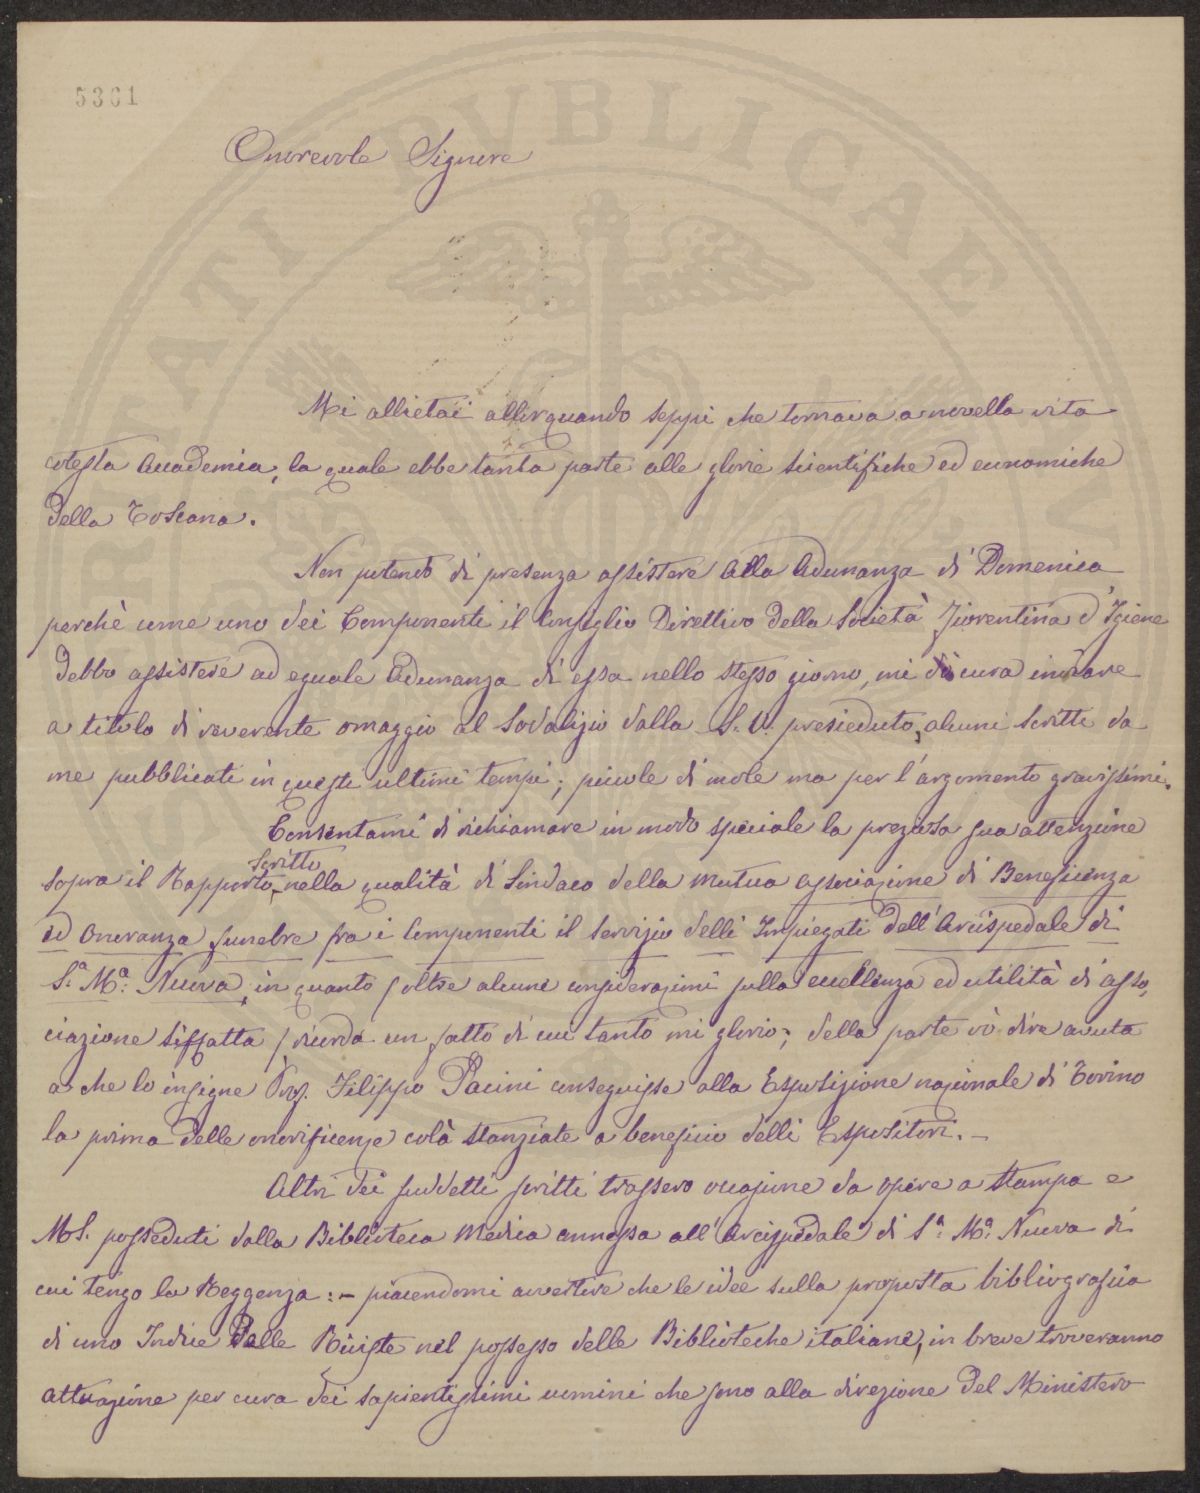 5361
Onorevole Signore
Mi allietai allorquando seppi che tornava a novella vita
cotesta Accademia, la quale ebbe tanta parte alle glorie scientifiche ed economiche
della Toscana.
Non potendo di presenza assistere alla Adunanza di Domenica
perchè come uno dei Componenti il Consiglio Direttivo della Società Fiorentina d'Igiene
debbo assistere ad eguale Adunanza di essa nello stesso giorno, mi dò cura inviare
a titolo di reverente omaggio al Sodalizio dalla S. V. presieduto, alcuni scritti da
me pubblicati in questi ultimi tempi; piccole di mole ma per l'argomento gravissimi.
Consentami di richiamare in modo speciale la preziosa sua attenzione
sopra il Rapporto, scritto nella qualità di Sindaco della Mutua associazione di Beneficenza
ed Onoranza funebre fra i Componenti il servizio delli Impiegati dell'Arcispedale di
S.a M.a Nuova, in quanto (oltre alcune considerazioni sulla eccellenza ed utilità di asso,
ciazione siffatta) ricorda un fatto di cui tanto mi glorio; della parte vò dire avuta
a che lo insigne Prof. Filippo Pacini conseguisse alla Esposizione nazionale di Torino
la prima delle onorificenze colà stanziate a beneficio delli Espositori. —
Altri dei suddetti scritti trassero occasione da opere a stampa e
MS. posseduti dalla Biblioteca Medica annessa all'Arcispedale di S.a M.a Nuova di
cui tengo la Reggenza: — piacendomi avvertire che le idee sulla proposta bibliografica
di uno Indice delle Riviste nel possesso delle Biblioteche italiane, in breve troveranno
attuazione per cura dei sapientissimi uomini che sono alla direzione del Ministero
RI ATI PVBLICAE V